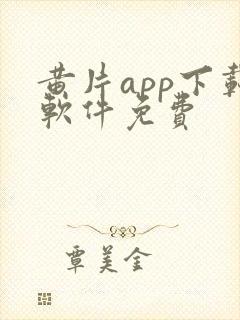 黄片app下载
软件免费
覃美金